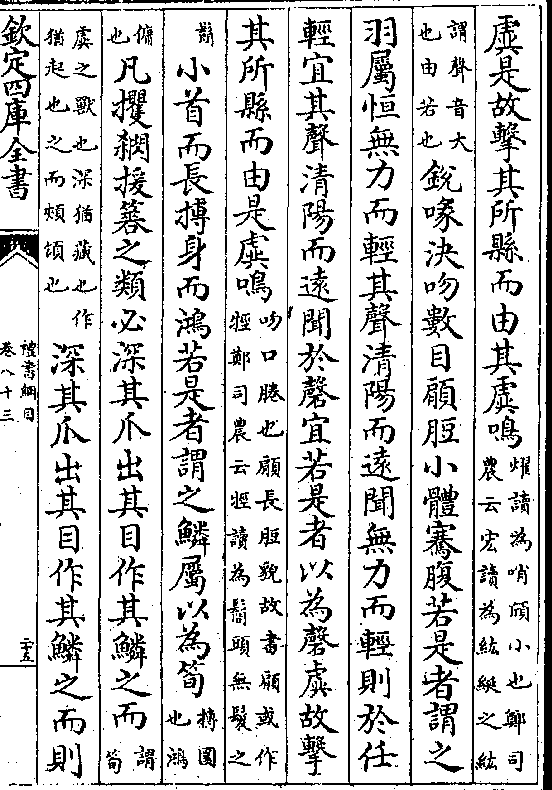 虡是故擊其所縣而由其虡鳴
耀讀為哨頎小也鄭司
農云宏讀為紘綖之紘
謂聲音大
也由若也
銳喙決吻數目顅脰小體騫腹若是者謂之
羽屬恒無力而輕其聲清陽而遠聞無力而輕則於任
輕宜其聲清陽而遠聞於磬宜若是者以為磬虡故擊
其所縣而由是虡鳴
吻口䐃也顅長脰貌故書顅或作
牼鄭司農云牼讀為鬜頭無髮之
鬜
小首而長搏身而鴻若是者謂之鱗屬以為筍
摶圜
也鴻
傭
也
凡攫閷援簭之類必深其爪出其目作其鱗之而
謂
筍
虡之獸也深猶藏也作
猶起也之而頰頌也
深其爪出其目作其鱗之而則
欽定四庫全書
禮書綱目
卷八十三
二十五